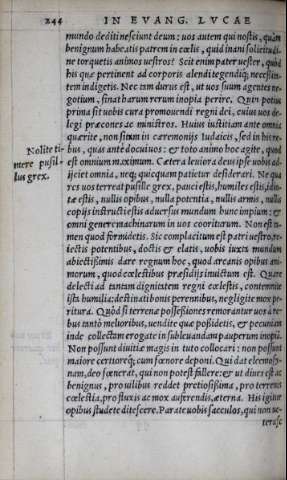 244 IN EVANG. LVCAE
mundo dediti nesciunt deum: uos autem qui nostis, quàm
benignum habeatis patrem in cœlis, quid inani solicitudi-
ne torquetis animos uestros? Scit enim pater uester, quòd
his quæ pertinent ad corporis alendi tegendiq́; necessita-
tem indigetis. Nec tam durus est, ut uos suum agentes ne-
gotium, sinat harum rerum inopia perire. Quin potius
prima sit uobis cura promouendi regni dei, cuius uos de-
legi præcones ac ministros. Huius iustitiam ante omnia
quærite, non sitam in ceremonijs Iudaicis, sed in his re-
Nolite ti-
bus, quas ante docui uos: & toto animo hoc agite, quod
mere pusil-
est omnium maximum. Cætera leuiora deus ipse uobis ad-
lus grex.
ijciet omnia, neq; quicquam patietur desiderari. Ne qua
res uos terreat pusille grex, pauci estis, humiles estis, idio-
tæ estis, nullis opibus, nulla potentia, nullis armis, nullis
copijs instructi estis aduersus mundum hunc impium: &
omni genere machinarum in uos cooriturum. Non est ta-
men quod formidetis. Sic complacitum est patri uestro, re-
iectis potentibus, doctis & elatis, uobis iuxta mundum
abiectissimis dare regnum hoc, quod arcanis opibus ani-
morum, quod cœlestibus præsidijs inuictum est. Quare
delecti ad tantam dignitatem regni cœlestis, contemnite
ista humilia: destinati bonis perennibus, negligite mox pe-
ritura. Quòd si terrenæ possessiones remorantur uos à re-
bus tantò melioribus, uendite quæ possidetis, & pecuniam
inde collectam erogate in subleuandam pauperum inopiam.
Non possunt diuitiæ magis in tuto collocari: non possunt
maiore certoreq́; cum fœnore deponi. Qui dat eleemosy-
nam, deo fœnerat, qui non potest fallere: & ut diues est ac
benignus, pro uilibus reddet pretiosissima, pro terrenis
cœlestia, pro fluxis ac mox auferendis, æterna. His igitur
opibus studete ditescere. Parate uobis sacculos, qui non ue-
terasc